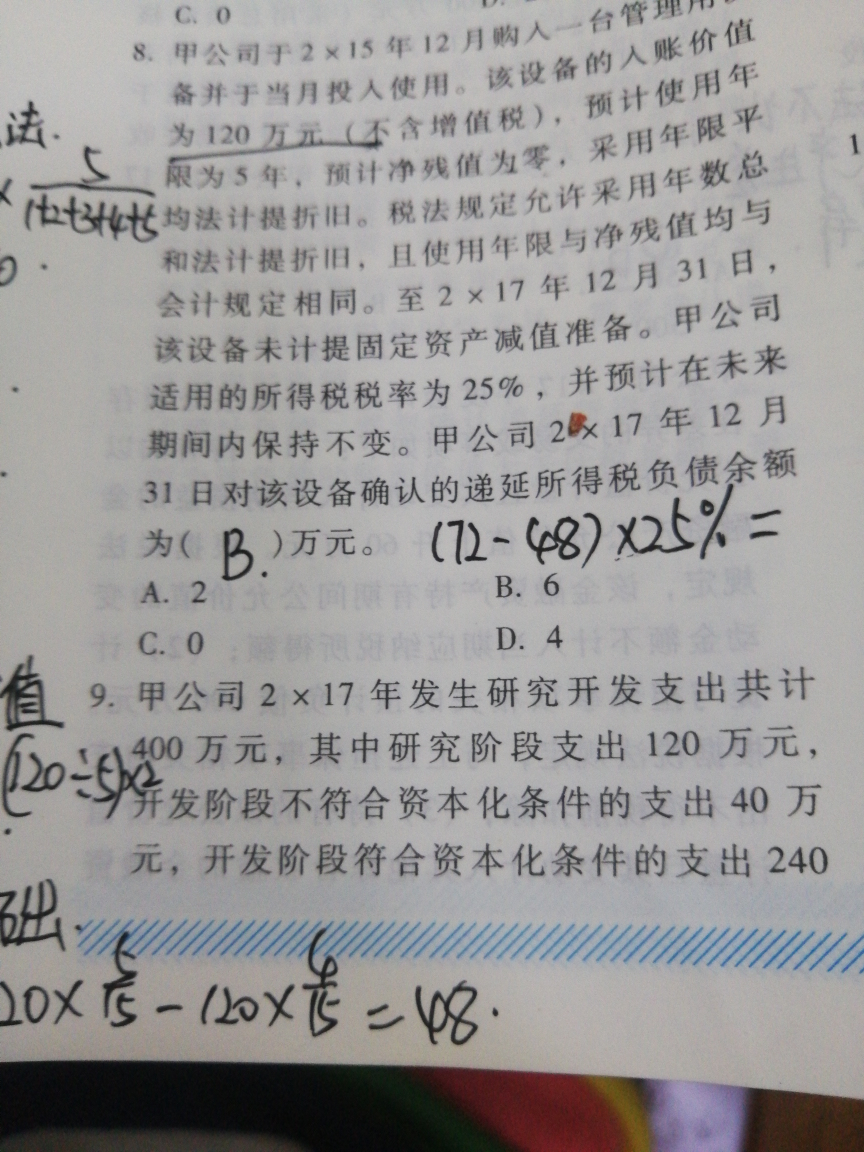 C. 0
8. 甲公司于2×15年12月购入一台管理用
备并于当月投入使用。该设备的入账价值
为120万元（不含增值税），预计使用年
限为5年，预计净残值为零，采用年限平
均法计提折旧。税法规定允许采用年数总
和法计提折旧，且使用年限与净残值均与
会计规定相同。至2×17年12月31日，
该设备未计提固定资产减值准备。甲公司
适用的所得税税率为25%，并预计在未来
期间内保持不变。甲公司2×17年12月
31日对该设备确认的递延所得税负债余额
为( B. )万元。 (72-48)×25%=
A. 2 B. 6
C. 0 D. 4
9. 甲公司2×17年发生研究开发支出共计
400万元，其中研究阶段支出120万元，
开发阶段不符合资本化条件的支出40万
元，开发阶段符合资本化条件的支出240
法.
× 5/1+2+3+4+5
0.
值
(120÷5)×2
出.
20×5/15-120×4/15=48.